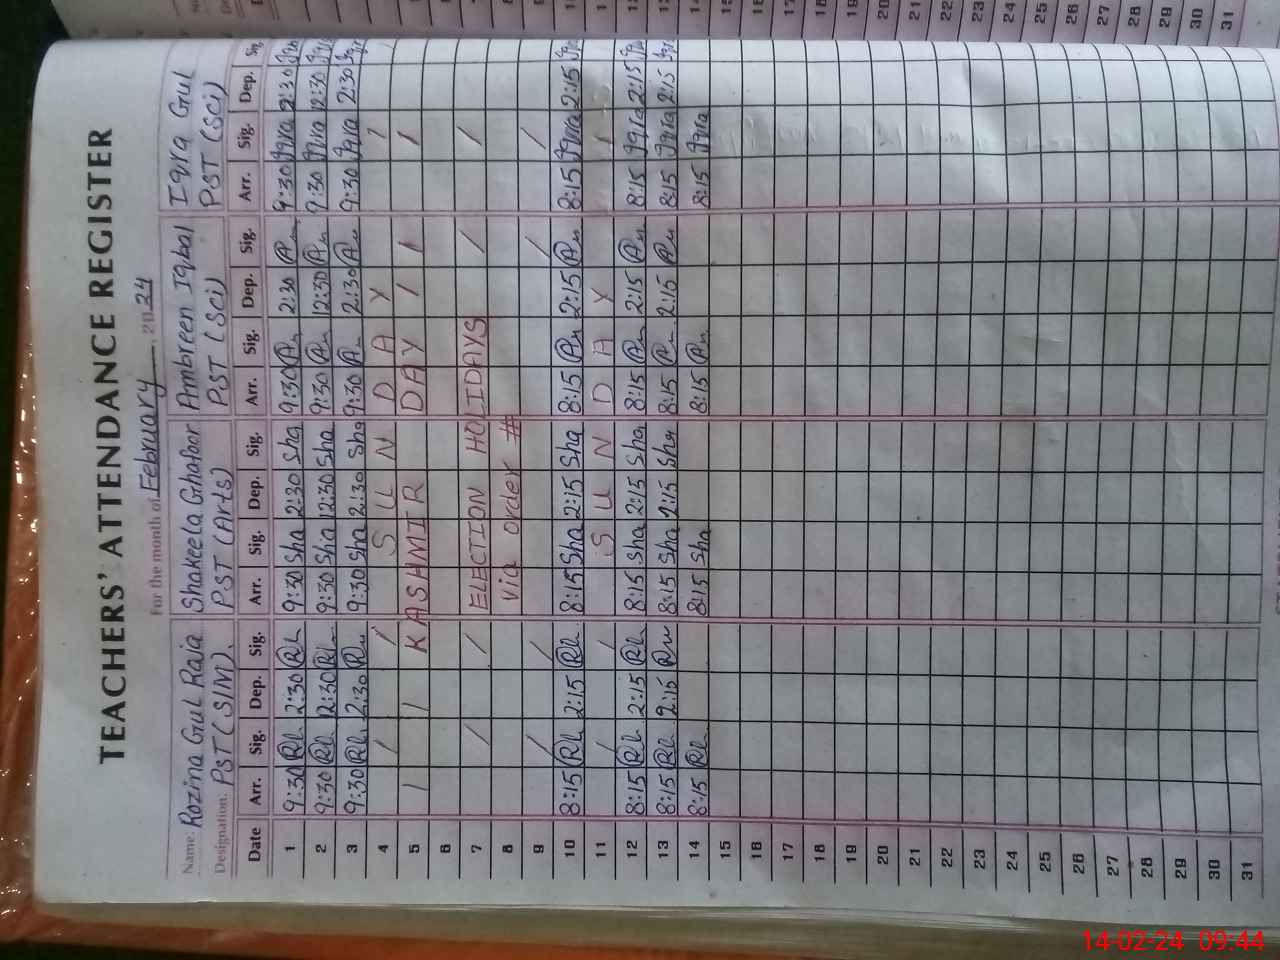 TEACHERS' ATTENDANCE REGISTER
For the month of February, 2024
Name: Rozina Gul Raja Shakeela Ghafoor Ambreen Iqbal Iqra Gul
Designation: PST (SIM). PST (Arts) PST (Sci) PST (Sci)
Date Arr. Sig. Dep. Sig. Arr. Sig. Dep. Sig. Arr. Sig. Dep. Sig. Arr. Sig. Dep. Sig.
1 9:30 2:30 9:30 Sha 2:30 Sha 9:30 2:30 9:30 Iqra 2:30
2 9:30 12:30 9:30 Sha 12:30 Sha 9:30 12:30 9:30 Iqra 12:30
3 9:30 2:30 9:30 Sha 2:30 Sha 9:30 2:30 9:30 Iqra 2:30
4 S U N D A Y
5 KASHMIR DAY
6
7 ELECTION HOLIDAYS
8 via order #
9
10 8:15 2:15 8:15 Sha 2:15 Sha 8:15 2:15 8:15 Iqra 2:15
11 S U N D A Y
12 8:15 2:15 8:15 Sha 2:15 Sha 8:15 2:15 8:15 Iqra 2:15
13 8:15 2:15 8:15 Sha 2:15 Sha 8:15 2:15 8:15 Iqra 2:15
14 8:15 8:15 Sha 8:15 8:15 Iqra
15
16
17
18
19
20
21
22
23
24
25
26
27
28
29
30
31
14-02-24 09:44